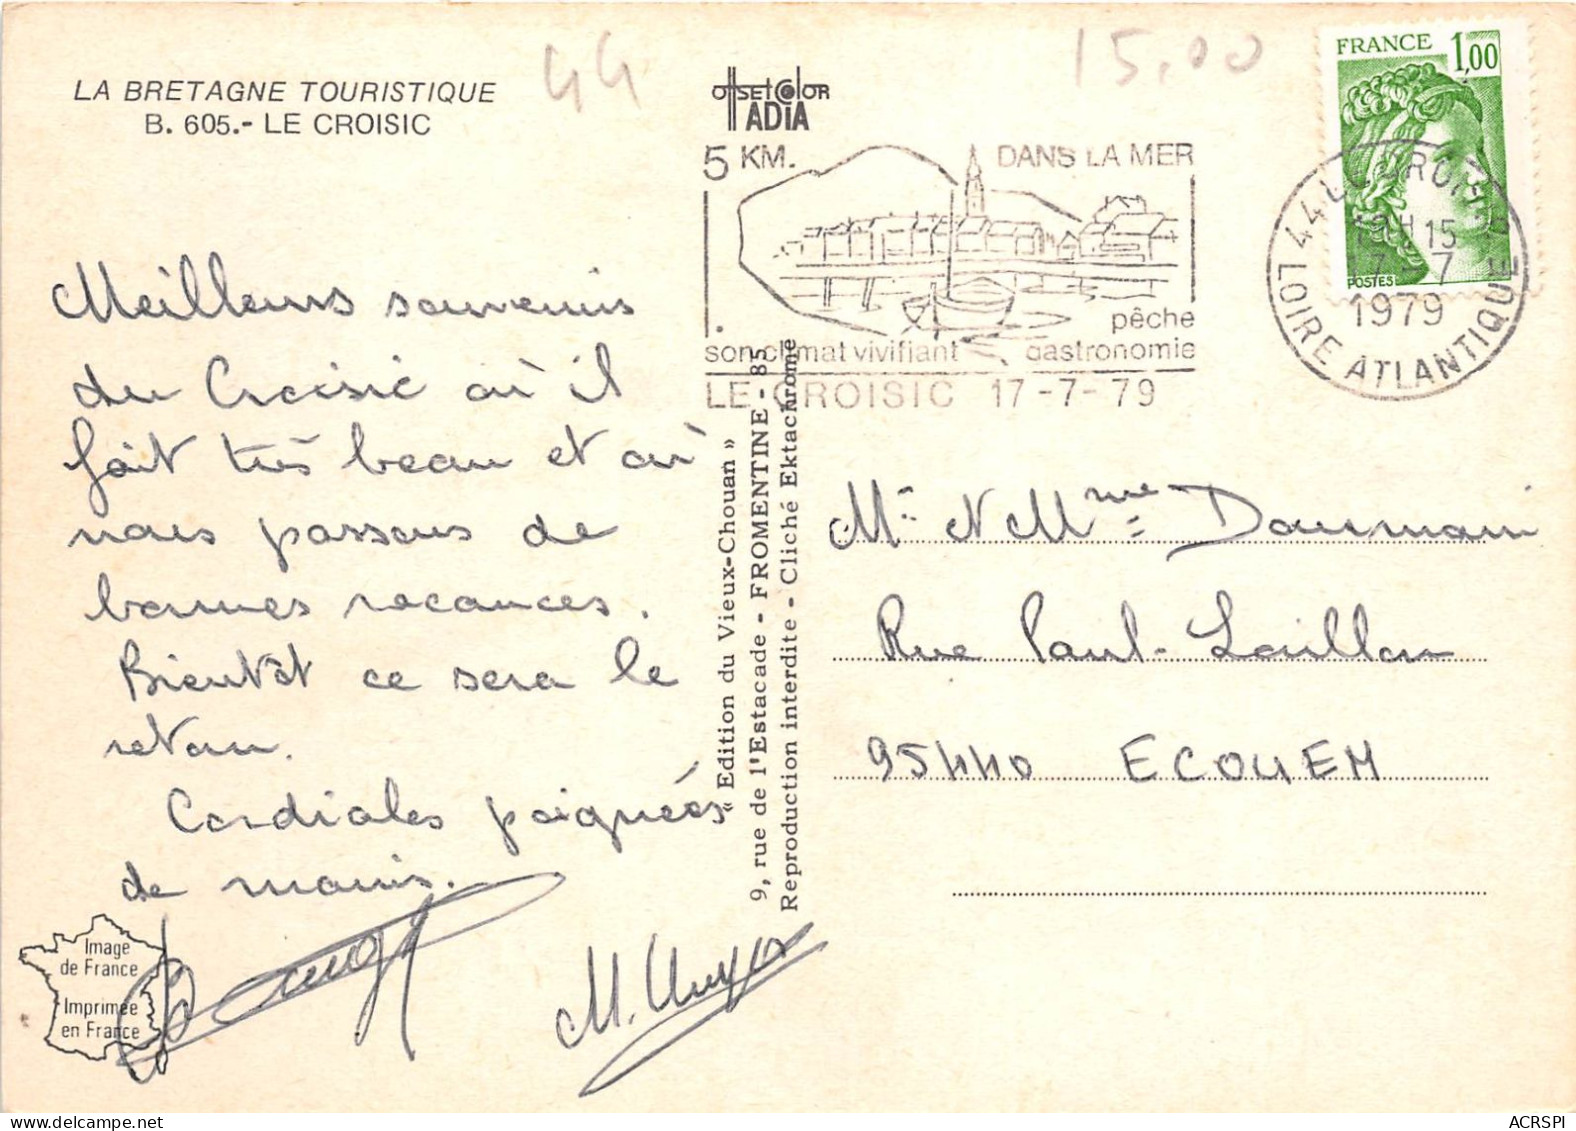 44
15,00
LA BRETAGNE TOURISTIQUE
B. 605.- LE CROISIC
OffSETCOlOR
IADIA
FRANCE 1,00
POSTES
5 KM. DANS LA MER
pêche
son climat vivifiant gastronomie
LE CROISIC 17-7-79
44 LE CROISIC
12H15
17-7
1979
LOIRE ATLANTIQUE
Meilleurs souvenirs
du Croisic où il
fait très beau et où
nous passons de
bonnes vacances.
Bientôt ce sera le
retour.
Cordiales poignées
de mains.
M.
« Edition du Vieux-Chouan »
9, rue de l'Estacade - FROMENTINE - 85
Reproduction interdite - Cliché Ektachrome
Mr Mme
Rue Paul-
95440 ECOUEN
Image
de France
Imprimée
en France
ACRSPI